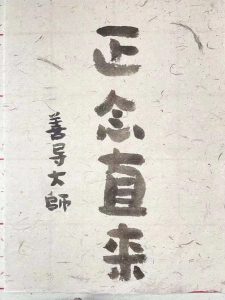 正念直来
善导大师